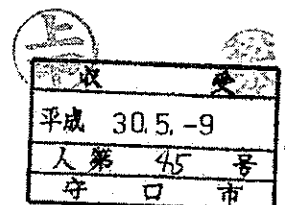 上
収 受
平成 30.5.-9
人第 45 号
守口市